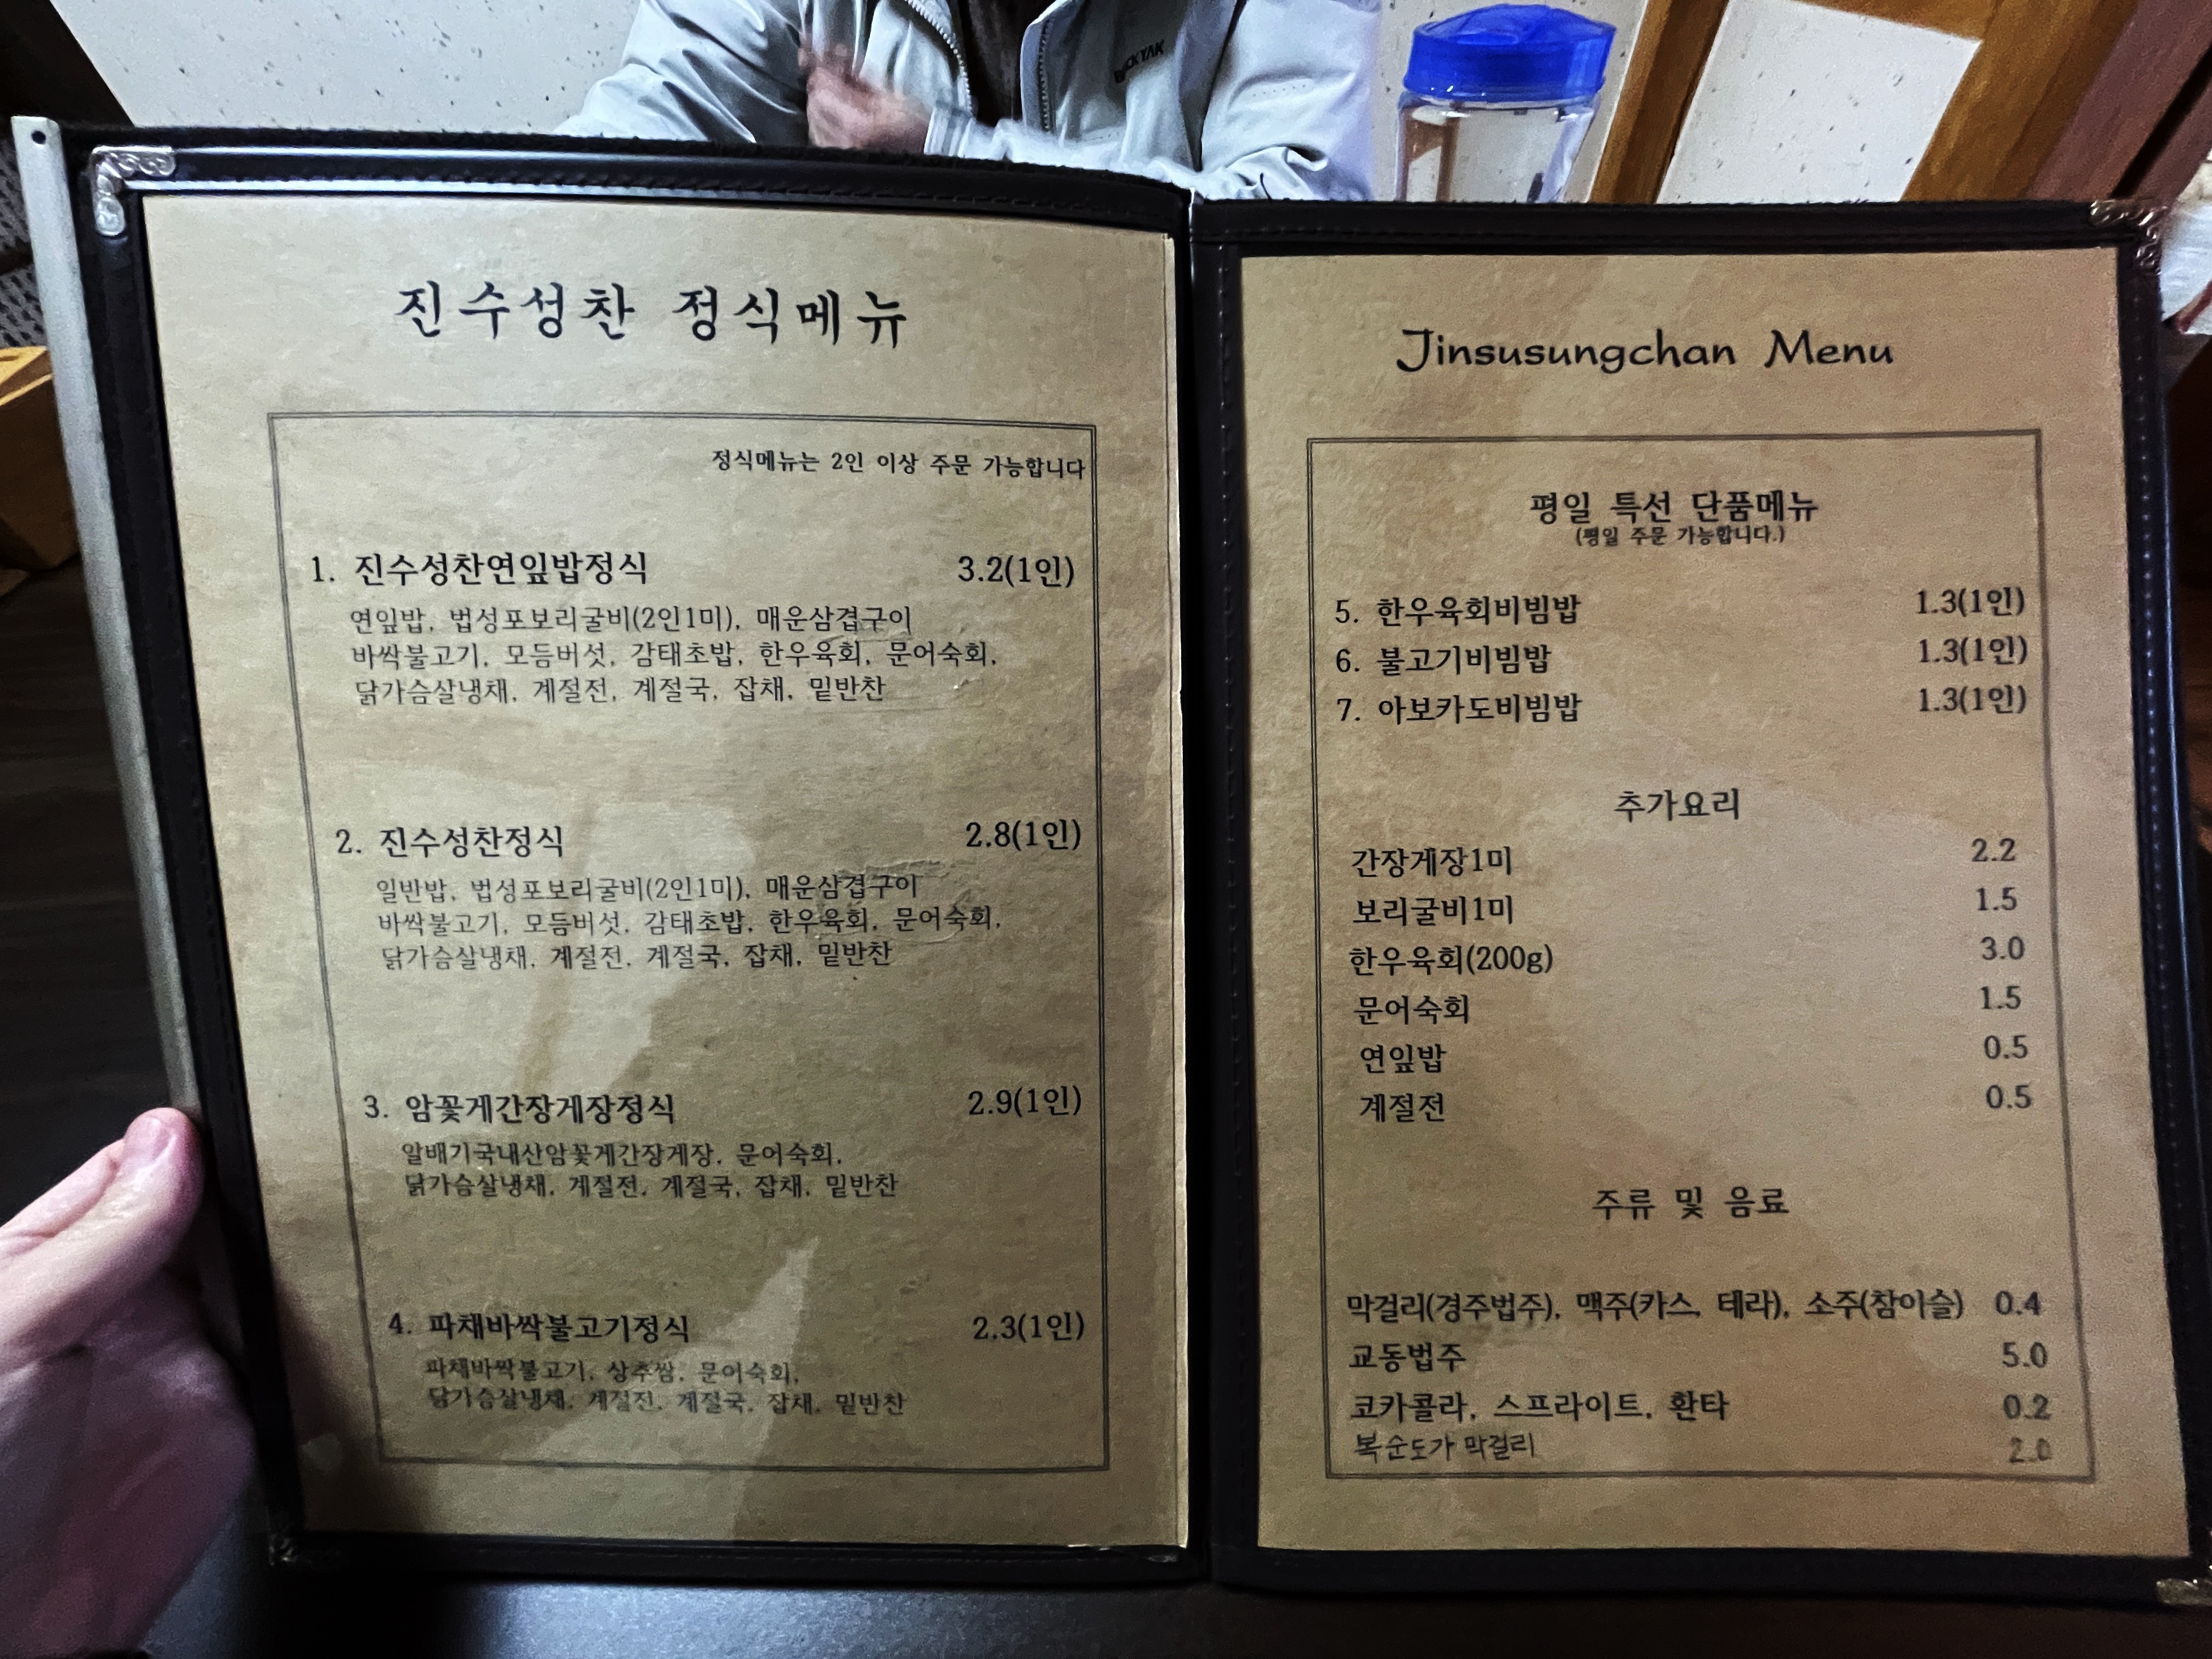 BLACKYAK
진수성찬 정식메뉴
정식메뉴는 2인 이상 주문 가능합니다
1. 진수성찬연잎밥정식 3.2(1인)
연잎밥, 법성포보리굴비(2인1미), 매운삼겹구이
바싹불고기, 모듬버섯, 감태초밥, 한우육회, 문어숙회,
닭가슴살냉채, 계절전, 계절국, 잡채, 밑반찬
2. 진수성찬정식 2.8(1인)
일반밥, 법성포보리굴비(2인1미), 매운삼겹구이
바싹불고기, 모듬버섯, 감태초밥, 한우육회, 문어숙회,
닭가슴살냉채, 계절전, 계절국, 잡채, 밑반찬
3. 암꽃게간장게장정식 2.9(1인)
알배기국내산암꽃게간장게장, 문어숙회,
닭가슴살냉채, 계절전, 계절국, 잡채, 밑반찬
4. 파채바싹불고기정식 2.3(1인)
파채바싹불고기, 상추쌈, 문어숙회,
닭가슴살냉채, 계절전, 계절국, 잡채, 밑반찬
Jinsusungchan Menu
평일 특선 단품메뉴
(평일 주문 가능합니다.)
5. 한우육회비빔밥 1.3(1인)
6. 불고기비빔밥 1.3(1인)
7. 아보카도비빔밥 1.3(1인)
추가요리
간장게장1미 2.2
보리굴비1미 1.5
한우육회(200g) 3.0
문어숙회 1.5
연잎밥 0.5
계절전 0.5
주류 및 음료
막걸리(경주법주), 맥주(카스, 테라), 소주(참이슬) 0.4
교동법주 5.0
코카콜라, 스프라이트, 환타 0.2
복순도가 막걸리 2.0